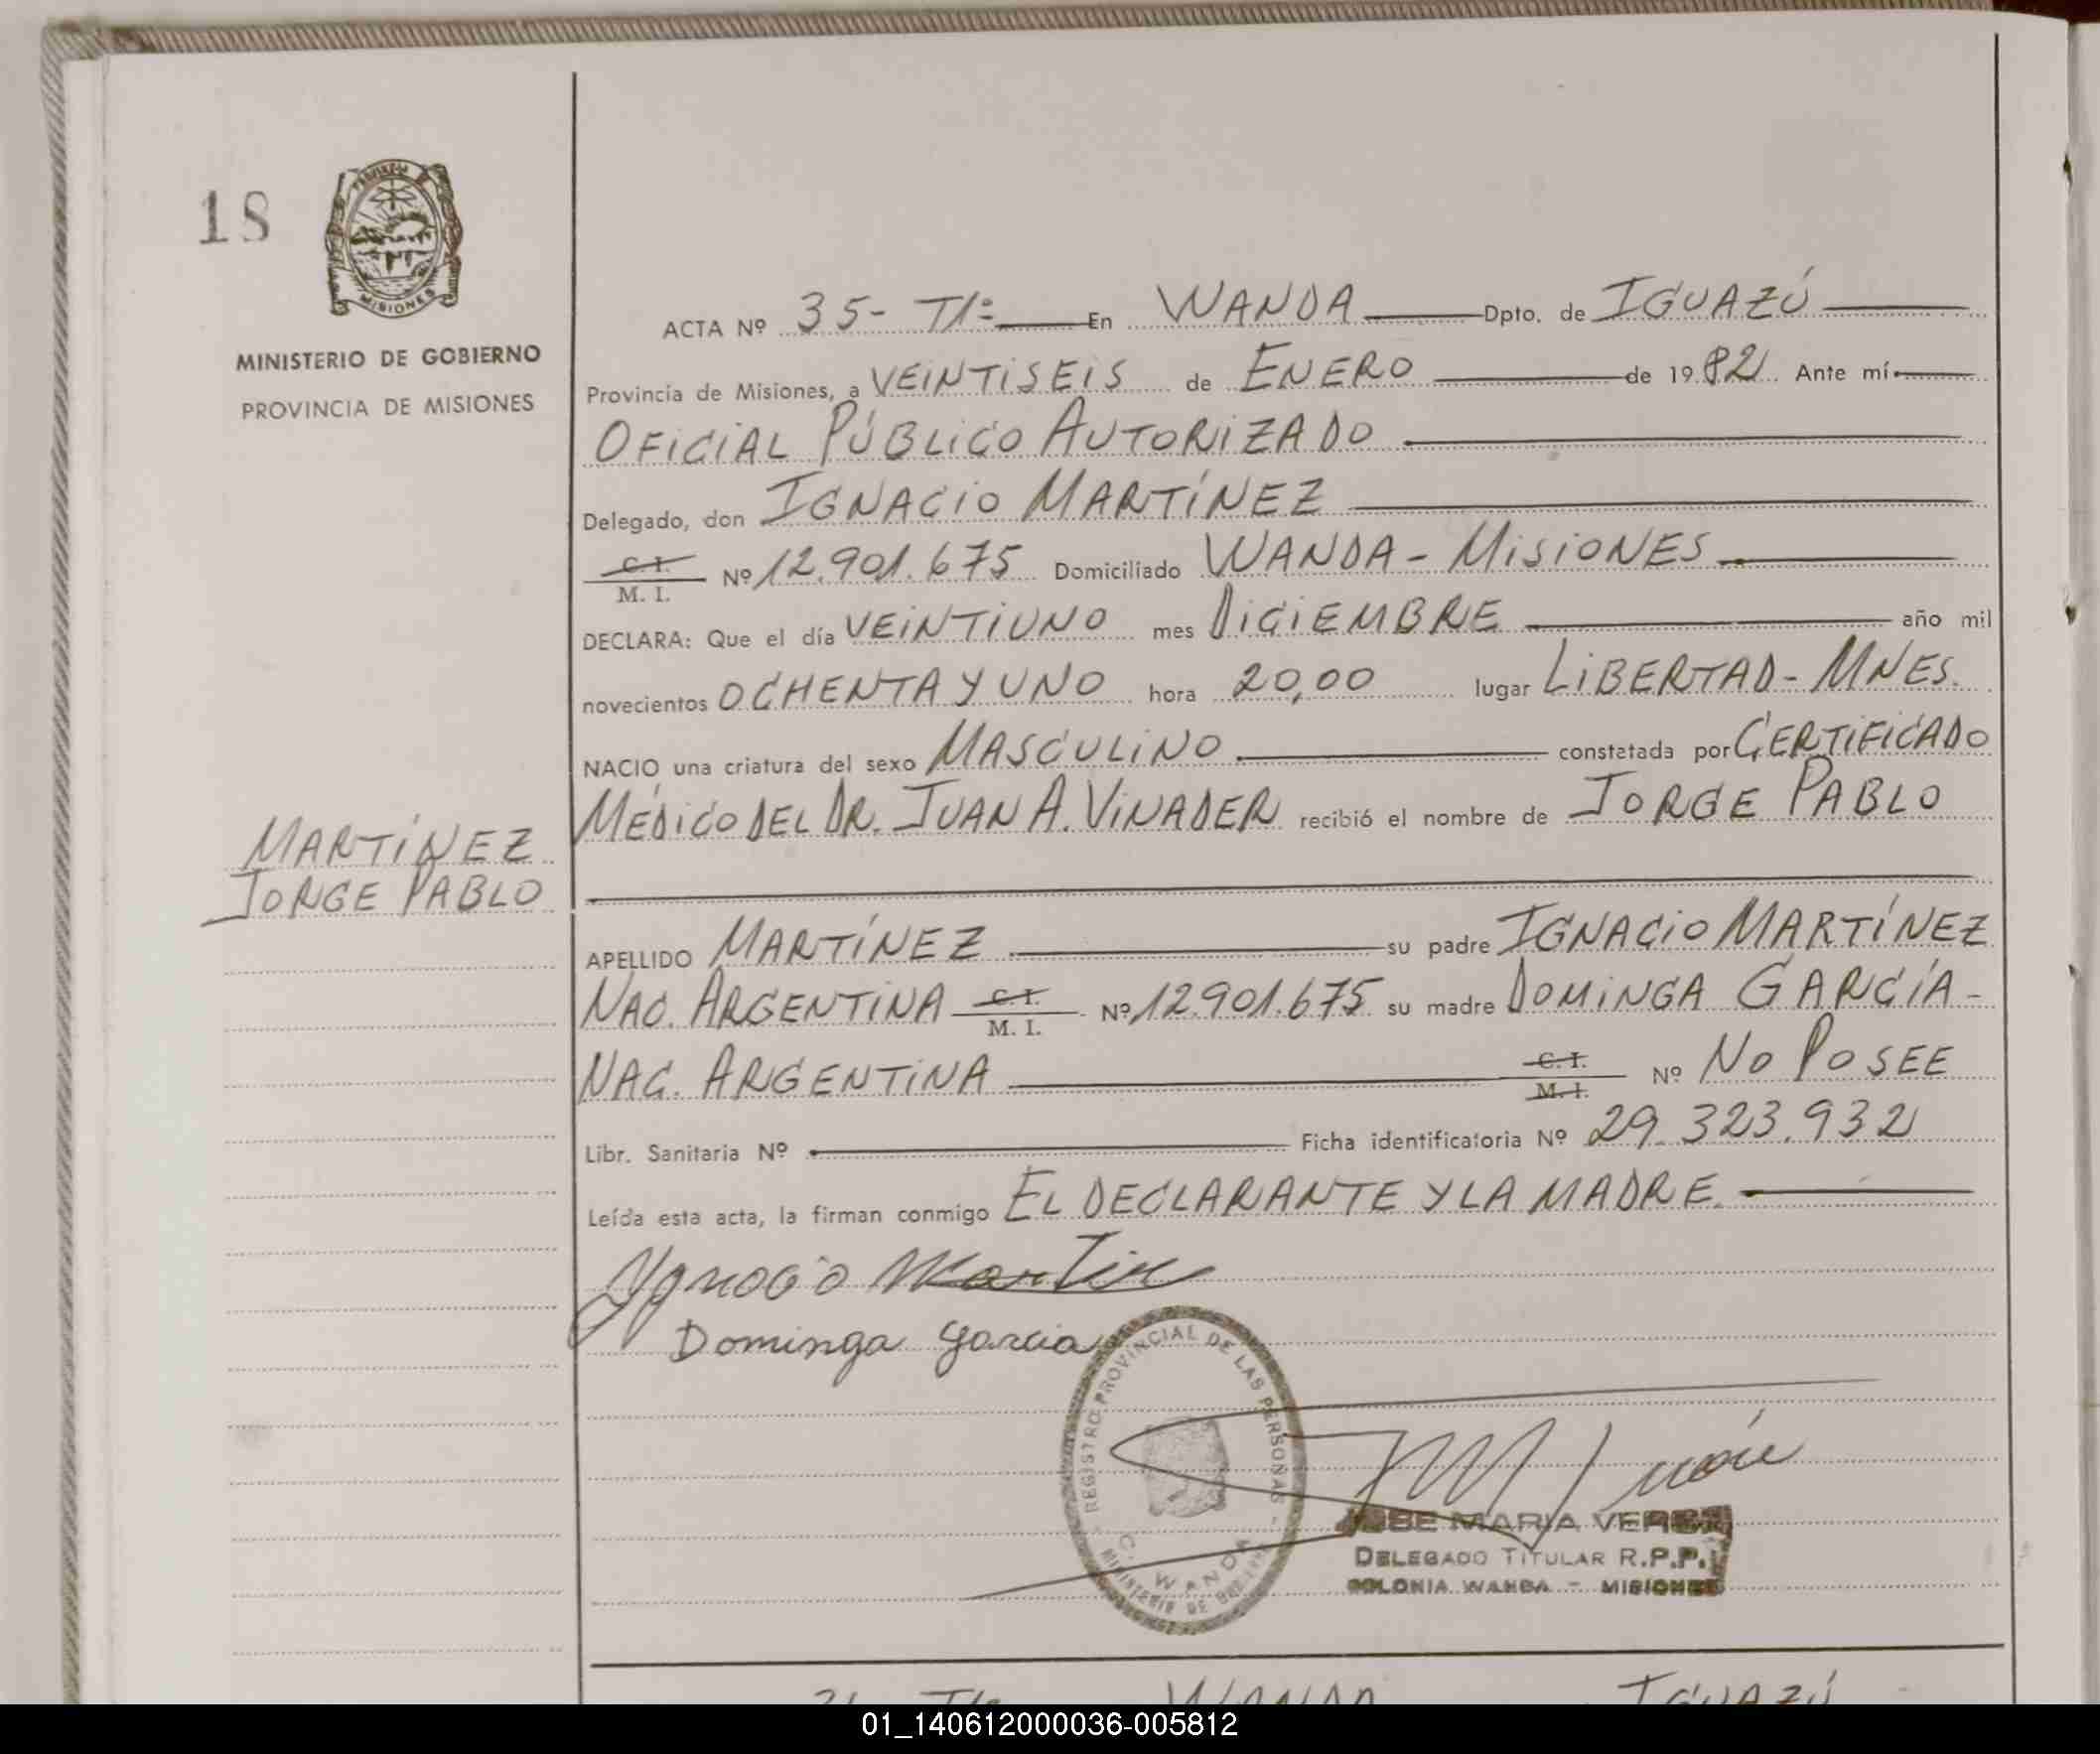 18
PROVINCIA DE
MISIONES
MINISTERIO DE GOBIERNO
PROVINCIA DE MISIONES
ACTA Nº 35- TI: En WANDA Dpto. de IGUAZÚ
Provincia de Misiones, a VEINTISEIS de ENERO de 1982 Ante mí
OFICIAL PÚBLICO AUTORIZADO
Delegado, don IGNACIO MARTÍNEZ
C. I.
M. I. Nº 12.901.675 Domiciliado WANDA - MISIONES
DECLARA: Que el día VEINTIUNO mes DICIEMBRE año mil
novecientos OCHENTA Y UNO hora 20,00 lugar LIBERTAD - MNES.
NACIO una criatura del sexo MASCULINO constatada por CERTIFICADO
MÉDICO DEL DR. JUAN A. VINADER recibió el nombre de JORGE PABLO
MARTÍNEZ
JORGE PABLO
APELLIDO MARTÍNEZ su padre IGNACIO MARTÍNEZ
NAC. ARGENTINA C. I. M. I. Nº 12.901.675 su madre DOMINGA GARCÍA -
NAC. ARGENTINA C. I. M. I. Nº NO POSEE
Libr. Sanitaria Nº Ficha identificatoria Nº 29.323.932
Leída esta acta, la firman conmigo EL DECLARANTE Y LA MADRE.
Ygnacio Martin
Dominga Garcia
REGISTRO PROVINCIAL DE LAS PERSONAS -
C. WANDA
MINISTERIO DE GOBIERNO
JOSE MARIA
DELEGADO TITULAR R.P.P.
COLONIA WANDA - MISIONES
WANDA IGUAZÚ
01_140612000036-005812